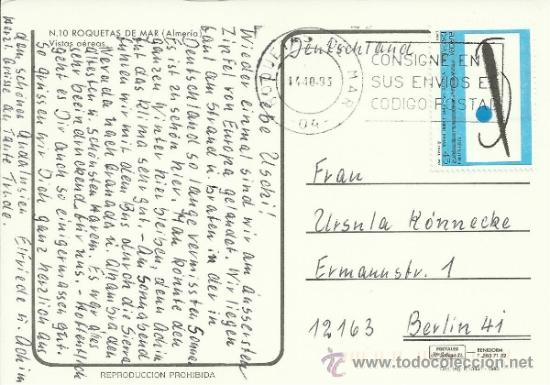 N.10 ROQUETAS DE MAR (Almería)
Vistas aéreas.
Liebe Uschi!
Wieder einmal sind wir am äussersten
Zipfel von Europa gelandet. Wir liegen
faul am Strand u. braten in der in
Deutschland so lange vermissten Sonne.
Es ist zu schön hier. Man könnte den
ganzen Winter hier bleiben, denn Achim
tut das Klima sehr gut. - Am Sonnabend
fuhren wir mit dem Bus durch die Sierra
Nevada nach Granada u. Alhambra dem
ältesten u. schönsten Harem. Es war alles
sehr beeindruckend für uns. - Hoffentlich
geht es Dir auch so einigermassen gut.
So grüssen wir Dich ganz herzlich aus
dem schönen Andalusien Elfriede u. Achim
Herzl. Grüsse an Tante Trude.
Deutschland
14-10-93
MAR
04
CONSIGNE EN
SUS ENVIOS EL
CODIGO POSTAL
Frau
Ursula Könnecke
Ermannstr. 1
12163 Berlin 41
REPRODUCCION PROHIBIDA
POSTALES
BENIDORM
todocoleccion